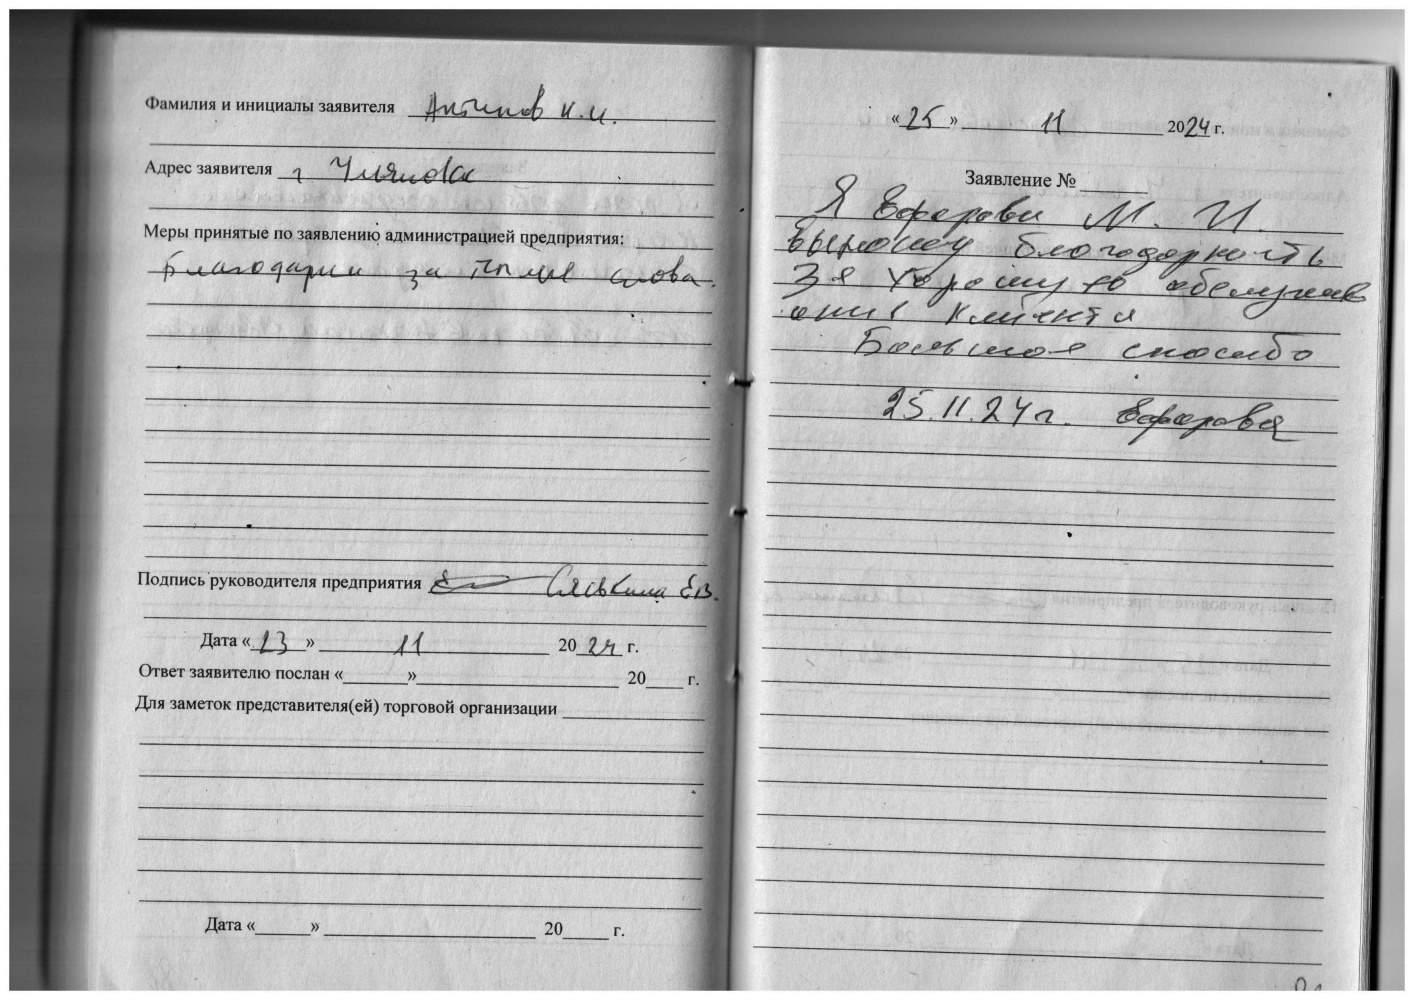 Фамилия и инициалы заявителя Антипов К.И.
Адрес заявителя г Ульяновск
Меры принятые по заявлению администрацией предприятия:
Благодарим за теплые слова.
Подпись руководителя предприятия Сяськина Е.В.
Дата «23» 11 2024 г.
Ответ заявителю послан «______»__________ 20____ г.
Для заметок представителя(ей) торговой организации
Дата «______» __________ 20_____ г.
«25» 11 2024 г.
Заявление №
Я М. И.
выношу благодарность
За хорошую обслужив
ание Клиента
Большое спасибо
25.11.24г.